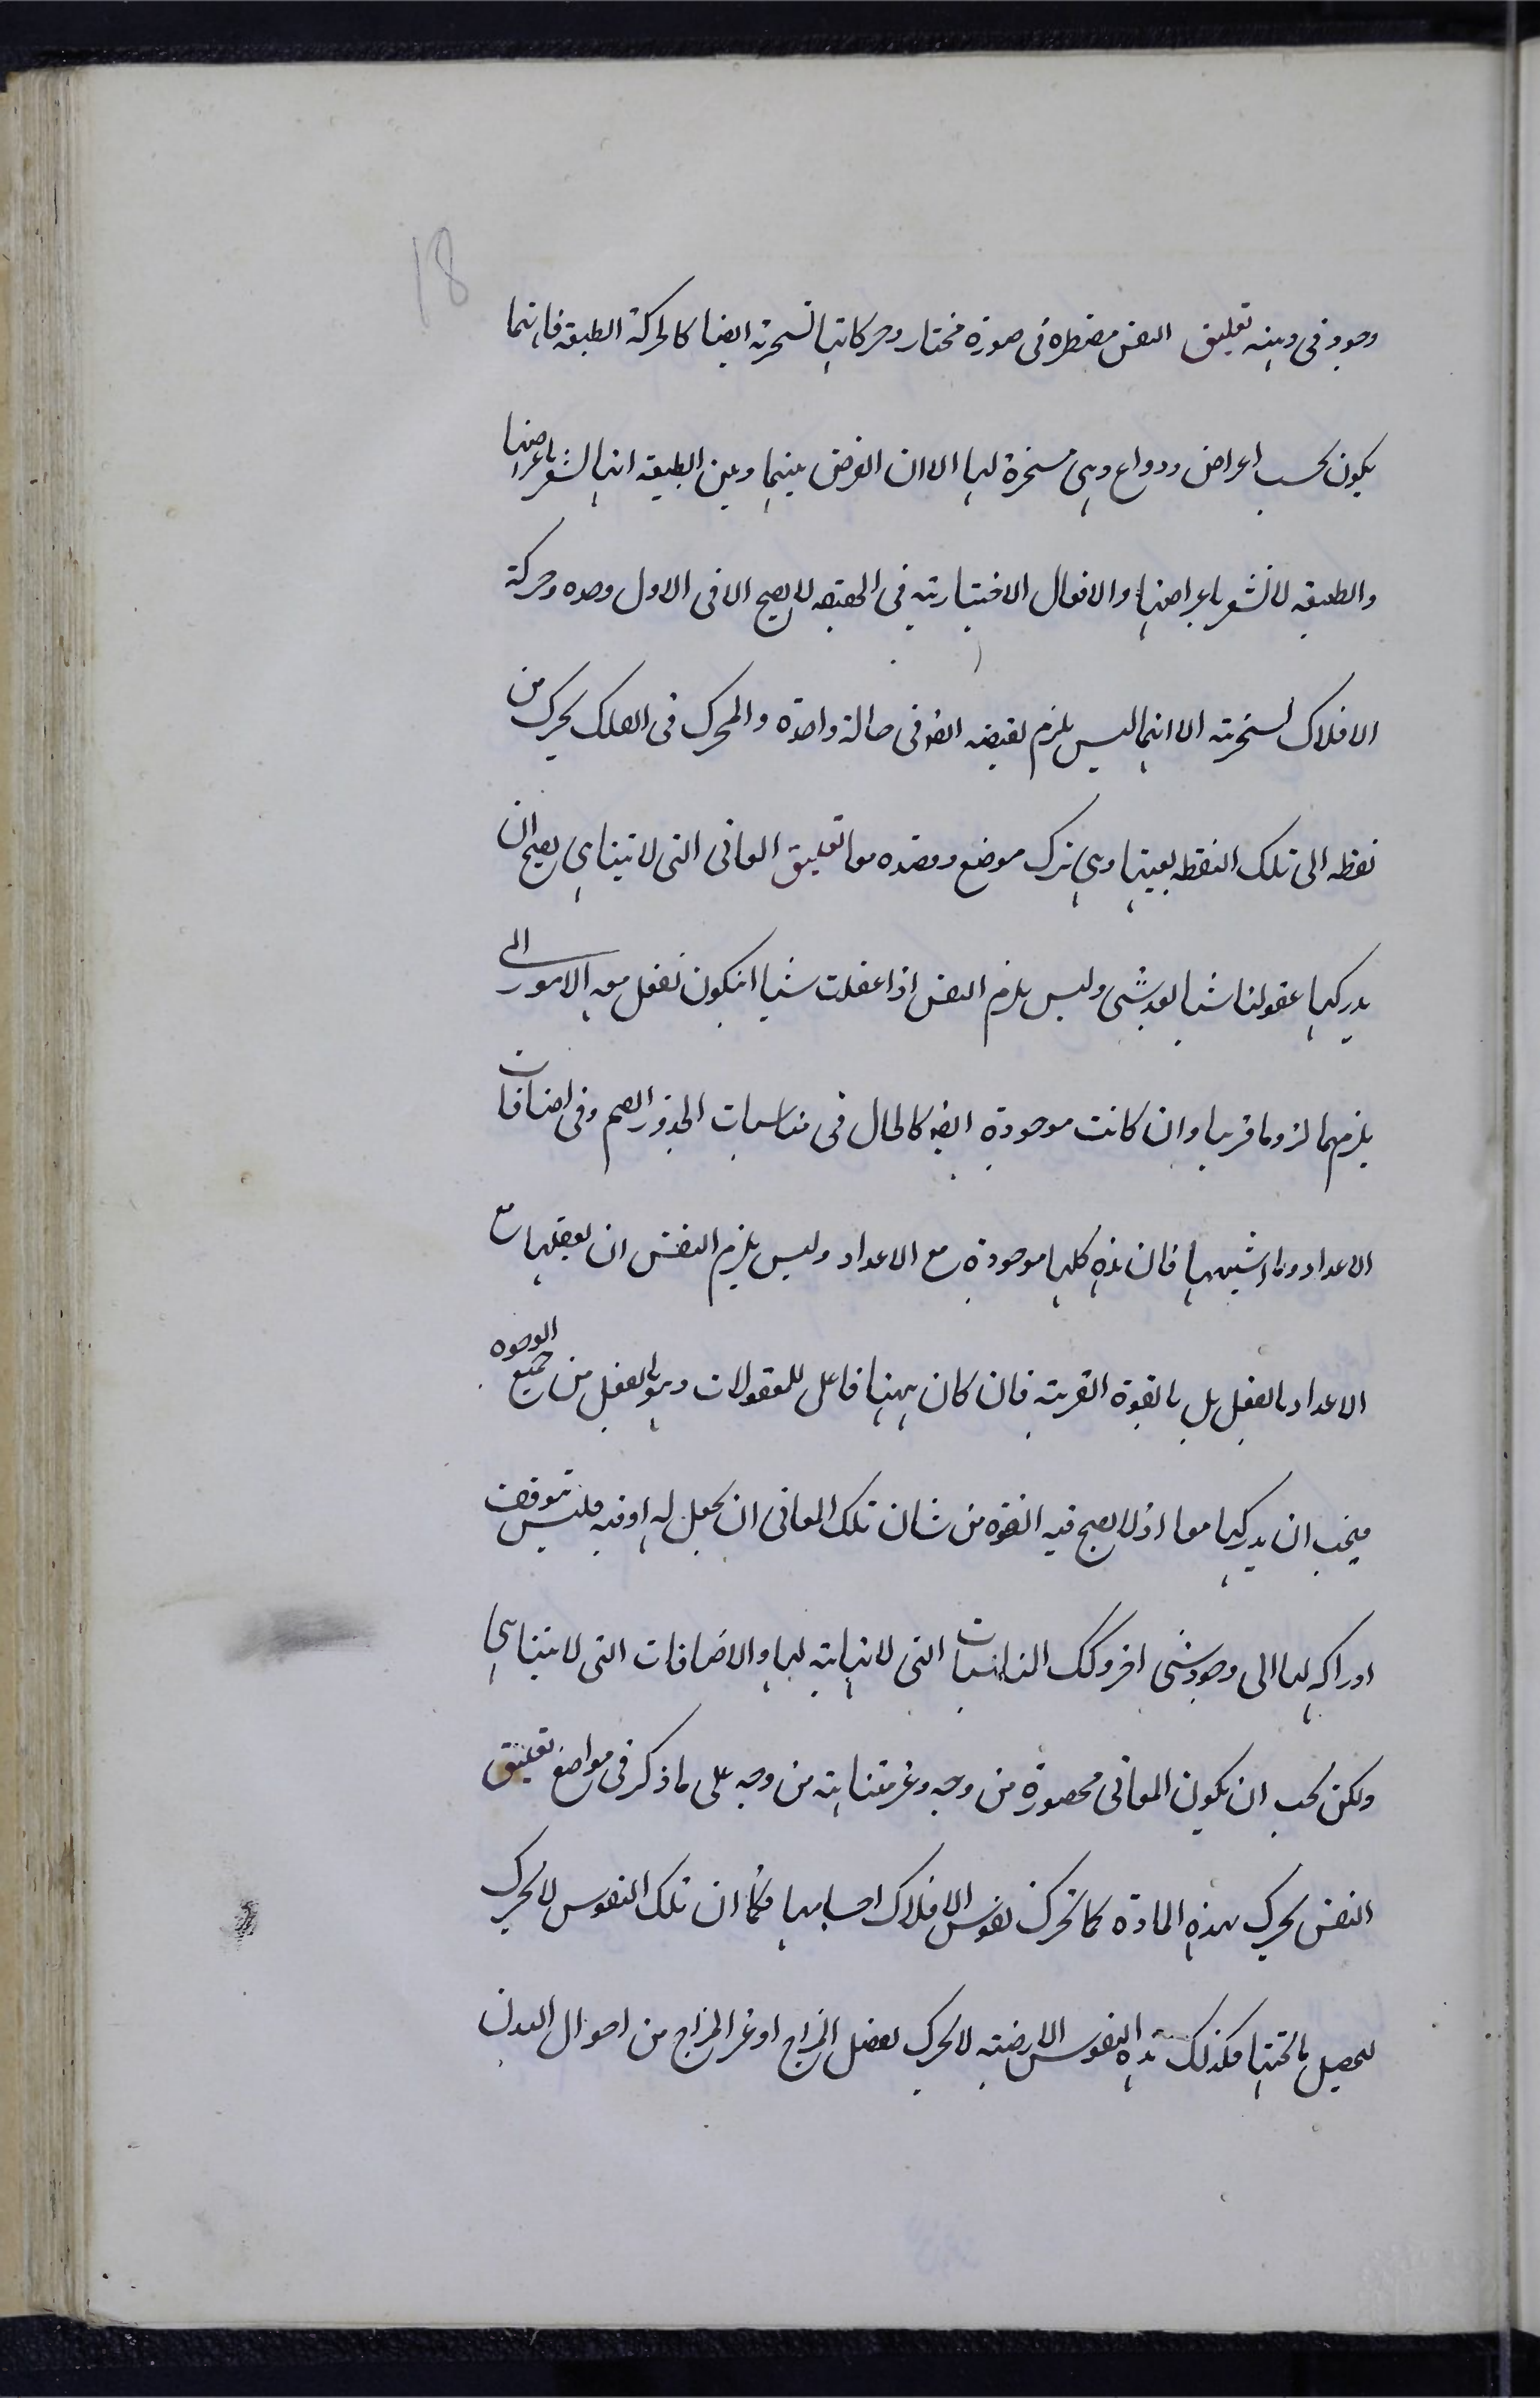 18
وجود فى دهنه تعليق النفس مضطره فى صورة مختار وحركاتها تسخرية ايضا كالحركة الطبيعة فانها
يكون بحسب اعراض ودواع وهى مسخرة لها الا ان الفرض بينها وبين الطبيعة انها تشعر باعراضها
والطبيعة لا تشعر باعراضها والافعال الاختيارية فى الحقيقه لا يصح الا فى الاول وحده وحركة
الافلاك تسخرية الا انها ليس يلزم نقيضه ايضا فى حالة واحدة والمحرك فى الفلك يحرك من
نقطه الى تلك النقطه بعينها وهى ترك موضع وقصده معا تعليق المعانى التى لا تيناهى يصح ان
يدركها عقولنا شيا بعد شى وليس يلزم النفس اذا عقلت شيا انيكون تعقل معه الامور التى
يلزمها لزوما قريبا وان كانت موجودة ايضا كالحال فى مناسبات الجذور الصم وفى اضافات
الاعداد وما اشبهها فان هذه كلها موجودة مع الاعداد وليس يلزم النفس ان يعقلها مع
الاعداد بالفعل بل بالقوة القريبة فان كان ههنا فاعل للمعقولات وهو بالفعل من جميع الوجوه
فيجب ان يدركها معا اذ لا يصح فيه القوة من شان تلك المعانى ان يحصل له او فيه فليس يتوقف
ادراكه لها الى وجود شى اخر وكك المناسبات التى لا نهاية لها والاضافات التى لا يتناهى
ولكن يجب ان يكون المعانى محصورة من وجه وغير متناهية من وجه على ما ذكر فى مواضع تعليق
النفس يحرك هذه المادة كما تحرك نفوس الافلاك اجسامها فكما ان تلك النفوس لا يحرك
ليحصل ما تحتها فكذلك هذه النفوس الارضيه لا يحرك لفضل المزاج او غير المزاج من احوال البدن